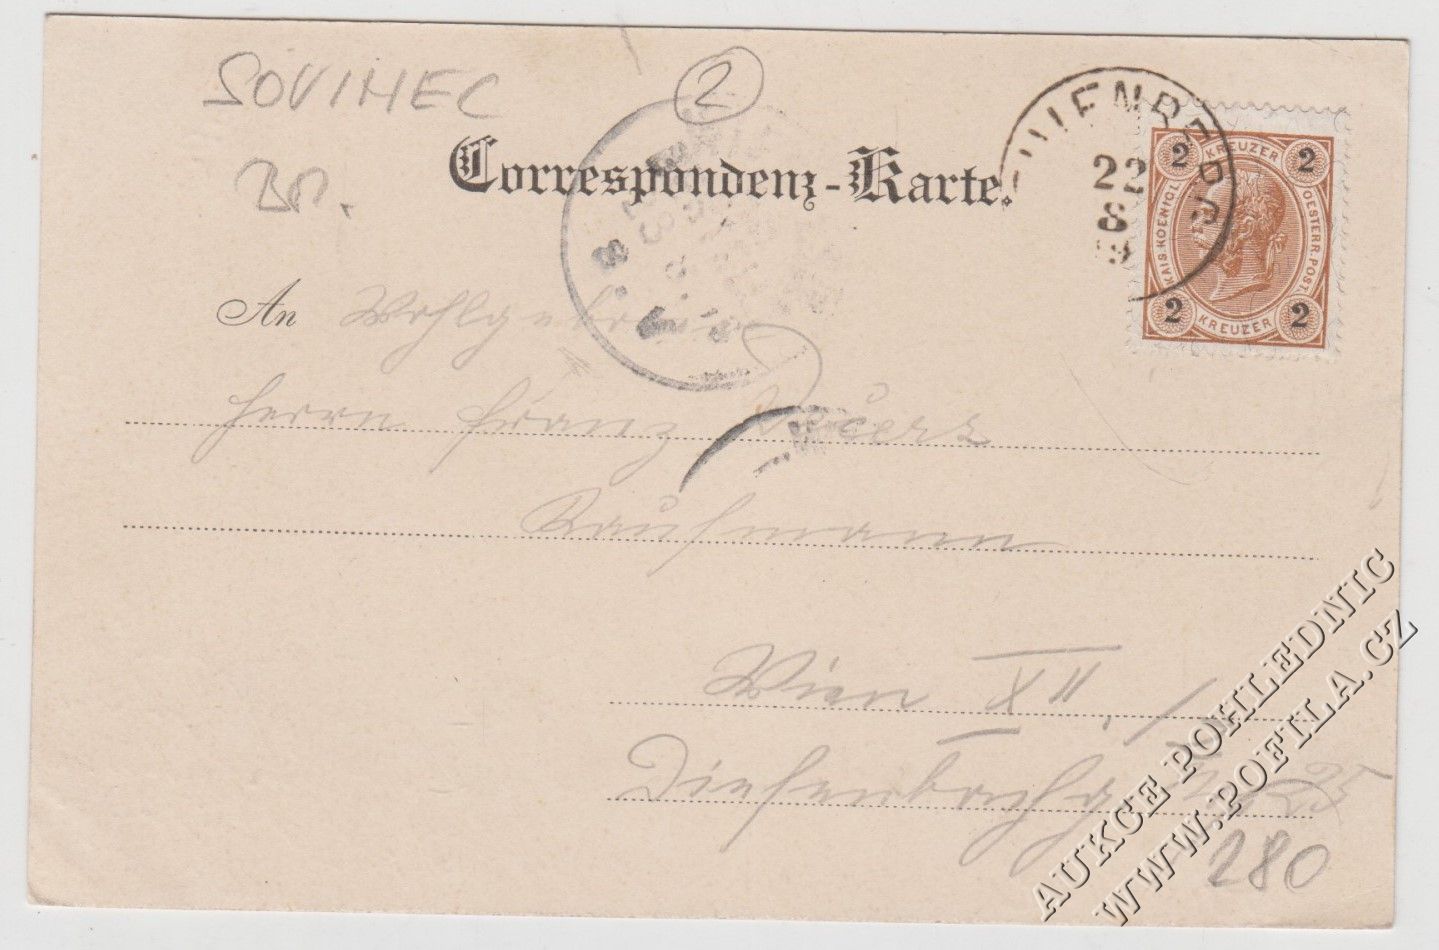 SOVINEC
2
Br.
Correspondenz-Karte.
22
8
9
2 KREUZER 2
KAIS. KOENIGL. OESTERR. POST.
2 KREUZER 2
8
An Wohlgeboren
Herrn Franz
Kaufmann
Wien XII, /
Diefenbachg 25
280
AUKCE POHLEDNIC
WWW.POFILA.CZ